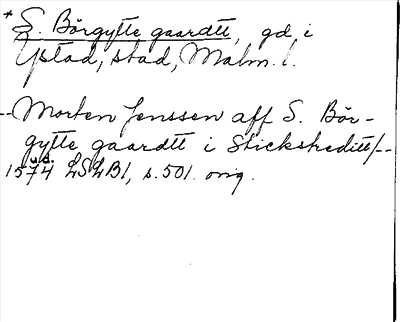 * S. Börgytte gaardtt, gd. i
Ystad, stad, Malm. l.
-- Morten Jenssen aff S. Bör-
gytte gaardtt i Stickstreditt/--
u.å.
1574 LSLB1, s. 501. orig.